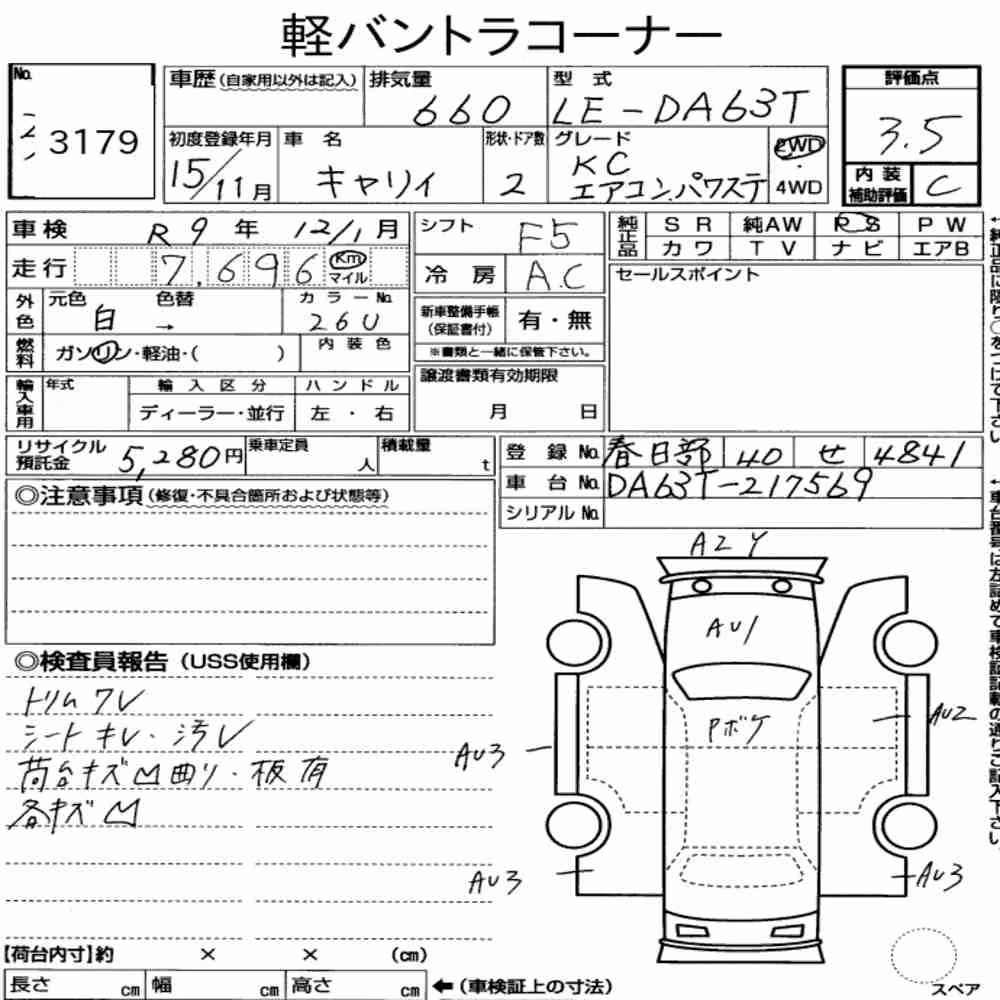 軽バントラコーナー
No. 3179
車歴(自家用以外は記入) 排気量 660 型式 LE-DA63T 評価点 3.5
初度登録年月 15/11月 車名 キャリイ 形状・ドア数 2 グレード KC エアコン.パワステ 2WD・4WD 内装補助評価 C
車検 R9年 12/1月 シフト F5 純正品 SR 純AW PS PW
走行 7,696 Km マイル 冷房 AC カワ TV ナビ エアB
外色 元色 白 色替 → カラーNo. 26U 新車整備手帳(保証書付) 有・無 セールスポイント
※書類と一緒に保管下さい。
燃料 ガソリン・軽油・( ) 内装色
輸入車用 年式 輸入区分 ディーラー・並行 ハンドル 左・右 譲渡書類有効期限 月 日
リサイクル預託金 5,280円 乗車定員 人 積載量 t 登録No. 春日部 40 せ 4841
車台No. DA63T-217569
シリアルNo.
◎注意事項(修復・不具合箇所および状態等)
A2 Y
AU1
◎検査員報告(USS使用欄)
トリムワレ
シートキレ・汚レ
荷台キズ凹曲リ・板有
各キズ凹
Pボケ
AU2
AU3
AU3
AU3
【荷台内寸】約 × × (cm)
長さ cm 幅 cm 高さ cm ←(車検証上の寸法)
スペア
↑純正品に限り○をつけて下さい
↑車台番号は左詰めで車検証記載の通りご記入下さい。